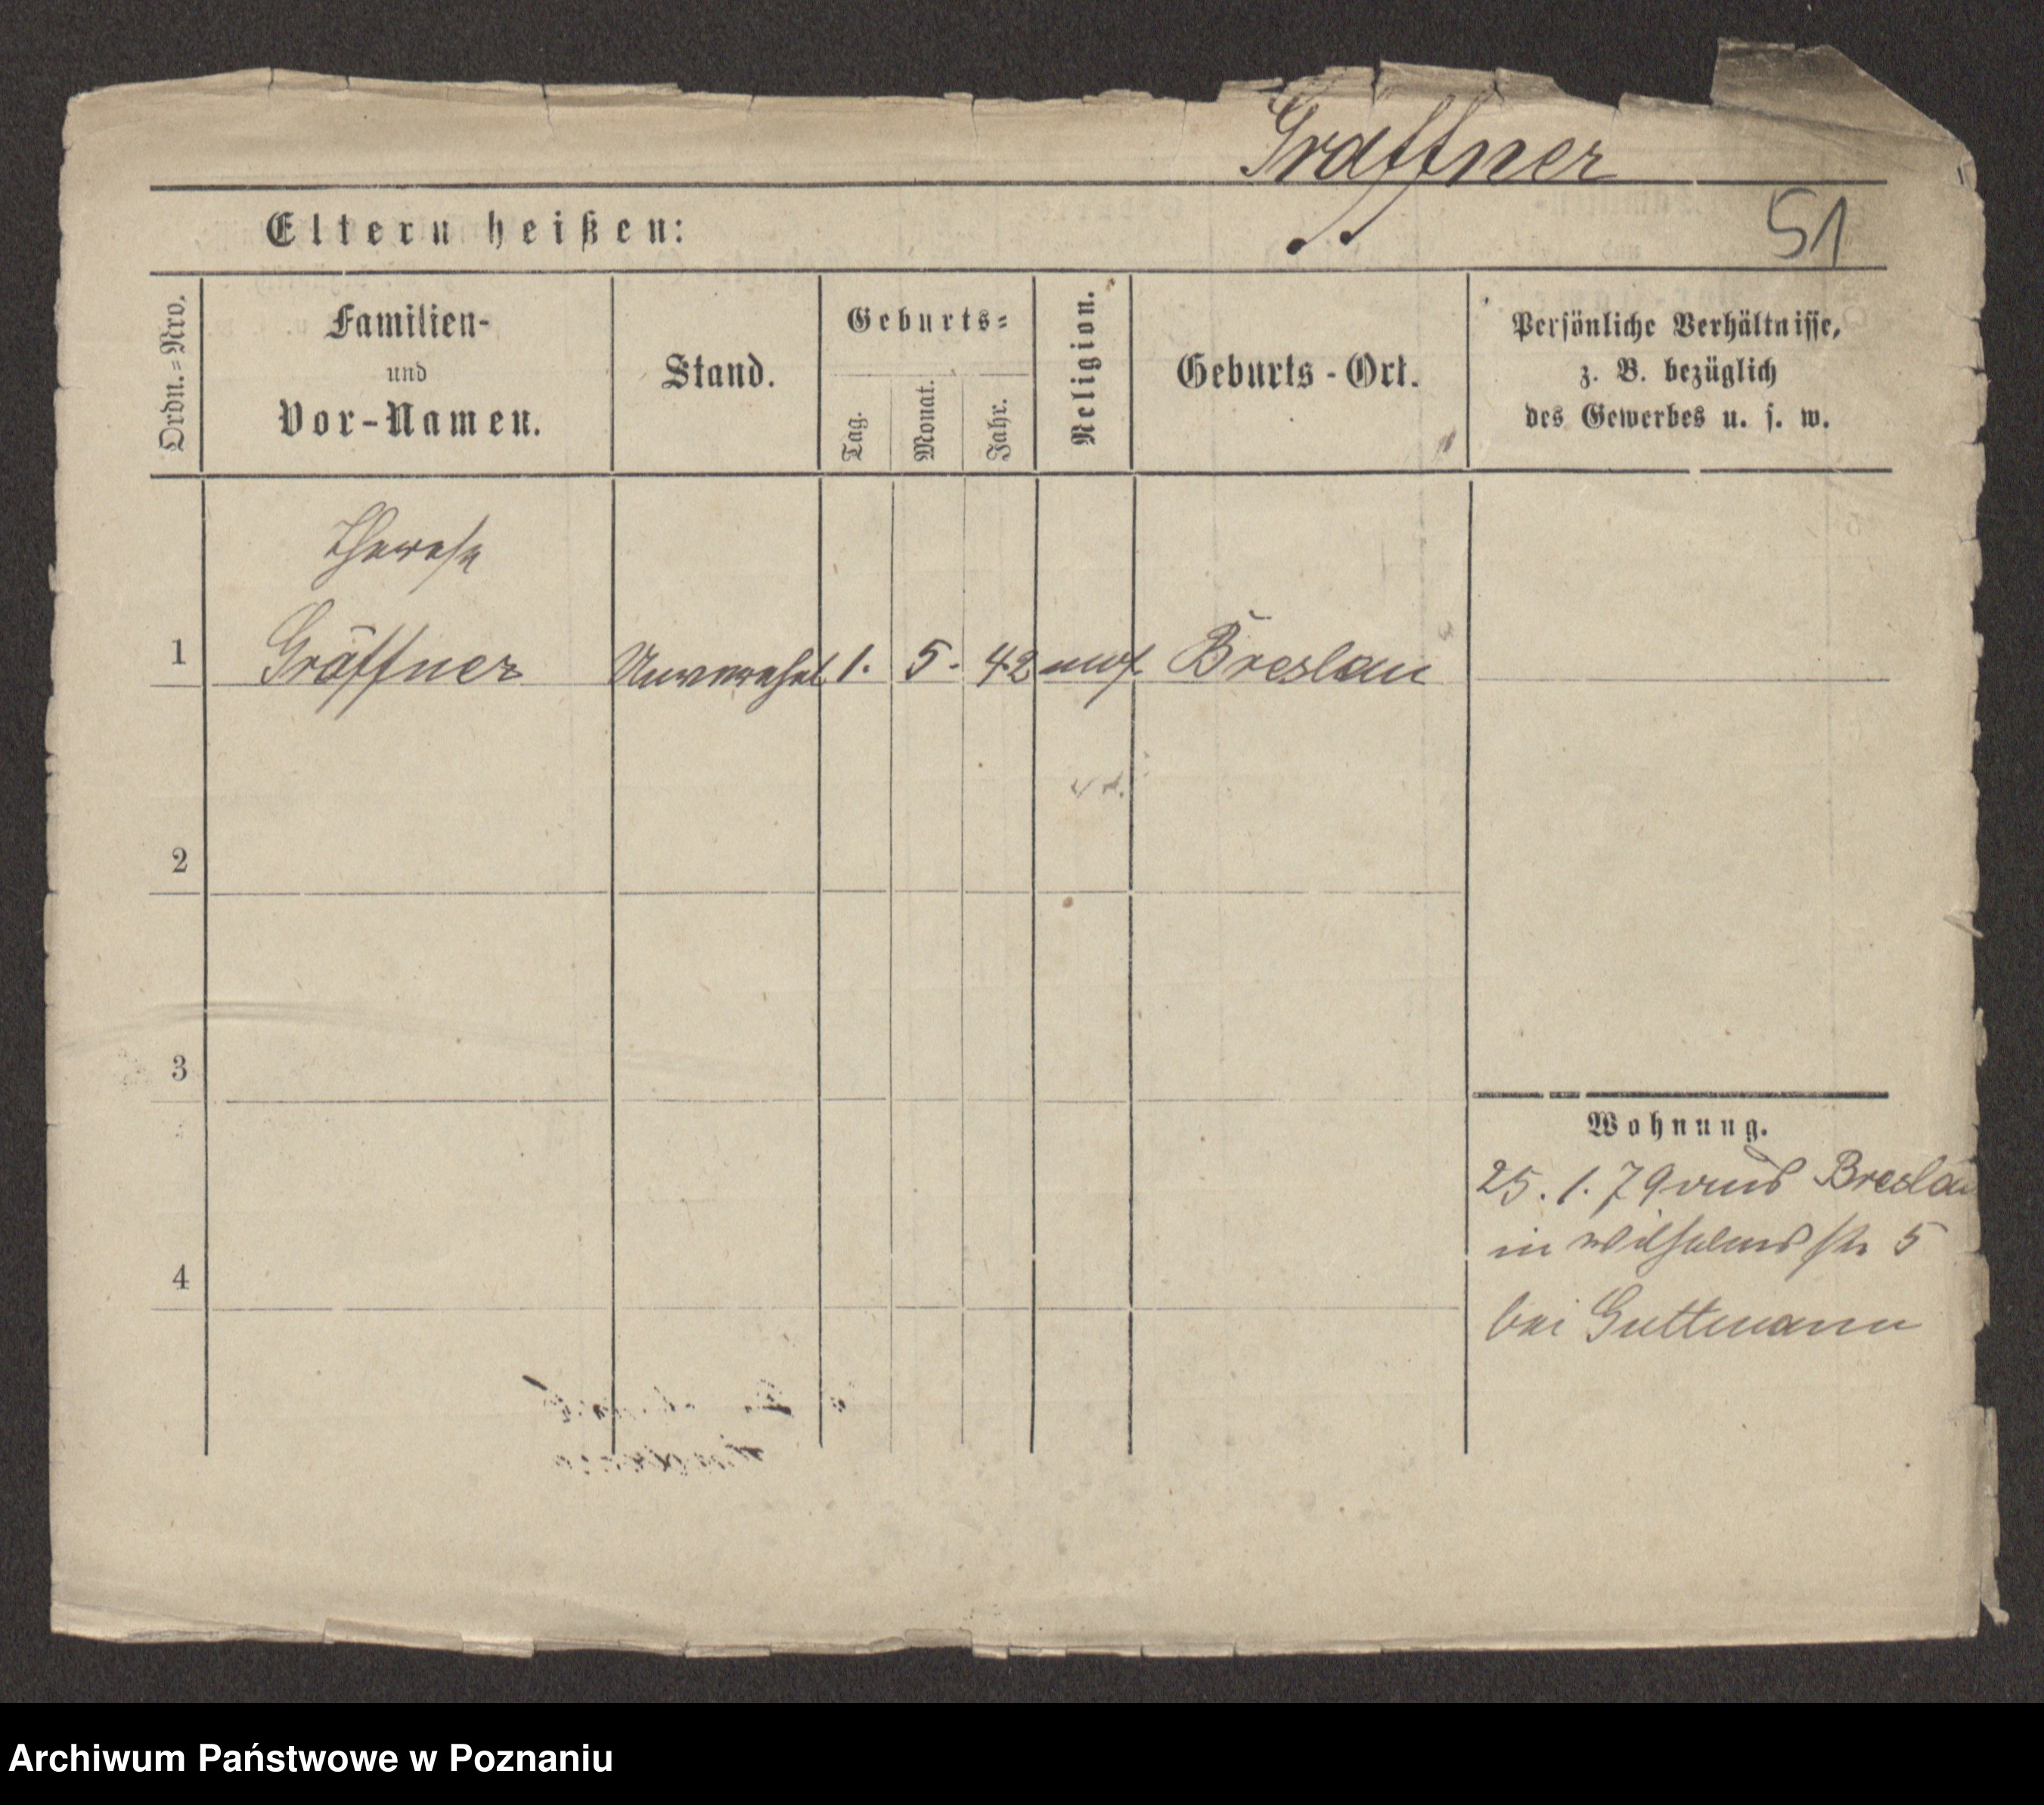 Gräffner
51
Eltern heißen:
Ordn.=Nro.
Familien-
und
Vor-Namen.
Stand.
Geburts=
Tag.
Monat.
Jahr.
Religion.
Geburts-Ort.
Persönliche Verhältnisse,
z. B. bezüglich
des Gewerbes u. s. w.
Therese
1 Gräffner Unverehel 1. 5. 42 Breslau
2
3
4
Wohnung.
25. 1. 79 aus Breslau
in Wilhelms str 5
bei Guttmann
Archiwum Państwowe w Poznaniu